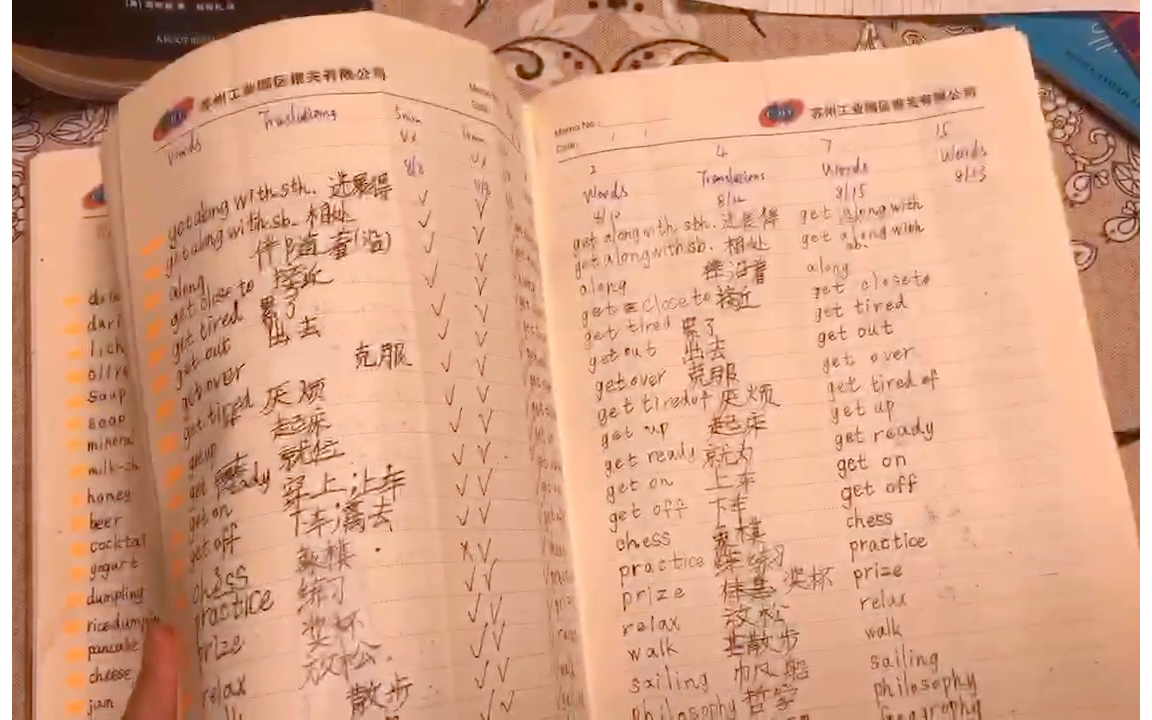 苏州工业园区报关有限公司
Words Translations 5min 10min
get along with sth. 进展得
get along with sb. 相处
along 伴随着(沿)
get close to 接近
get tired 累了
get out 出去
get over 克服
get tired 厌烦
get up 起床
get ready 就位
get on 穿上;上车
get off 下车;离去
chess 象棋
practice 练习
prize 奖杯
relax 放松
散步
soap
milk-sh
honey
beer
cocktail
yogurt
dumpling
pancake
cheese
jam
苏州工业园区报关有限公司
Memo No.:
Date:
2 4 7 15
Words Translations Words Words
8/12 8/15 8/23
get along with sth. 进展得 get along with
get along with sb. 相处 get along with sb.
along 伴沿着 along
get close to 接近 get close to
get tired 累了 get tired
get out 出去 get out
get over 克服 get over
get tired of 厌烦 get tired of
get up 起床 get up
get ready 就为 get ready
get on 上车 get on
get off 下车 get off
chess 象棋 chess
practice 练习 practice
prize 奖杯 prize
relax 放松 relax
walk 散步 walk
sailing 帆船 sailing
philosophy 哲学 philosophy
geography